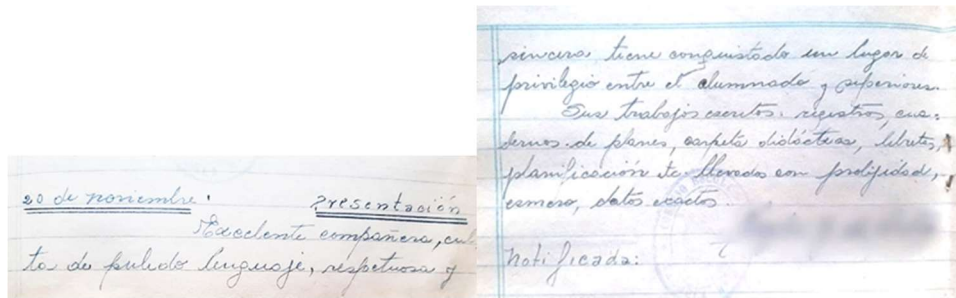 20 de noviembre. Presentación
Excelente compañera, cul
ta de pulido lenguaje, respetuosa y
sincera tiene conquistado un lugar de
privilegio entre el alumnado y superiores.
Sus trabajos escritos: registros, cua-
dernos de planes, carpeta didácticas, libretas,
planificación etc llevados con prolijidad,
esmero, datos exactos.
Notificada: